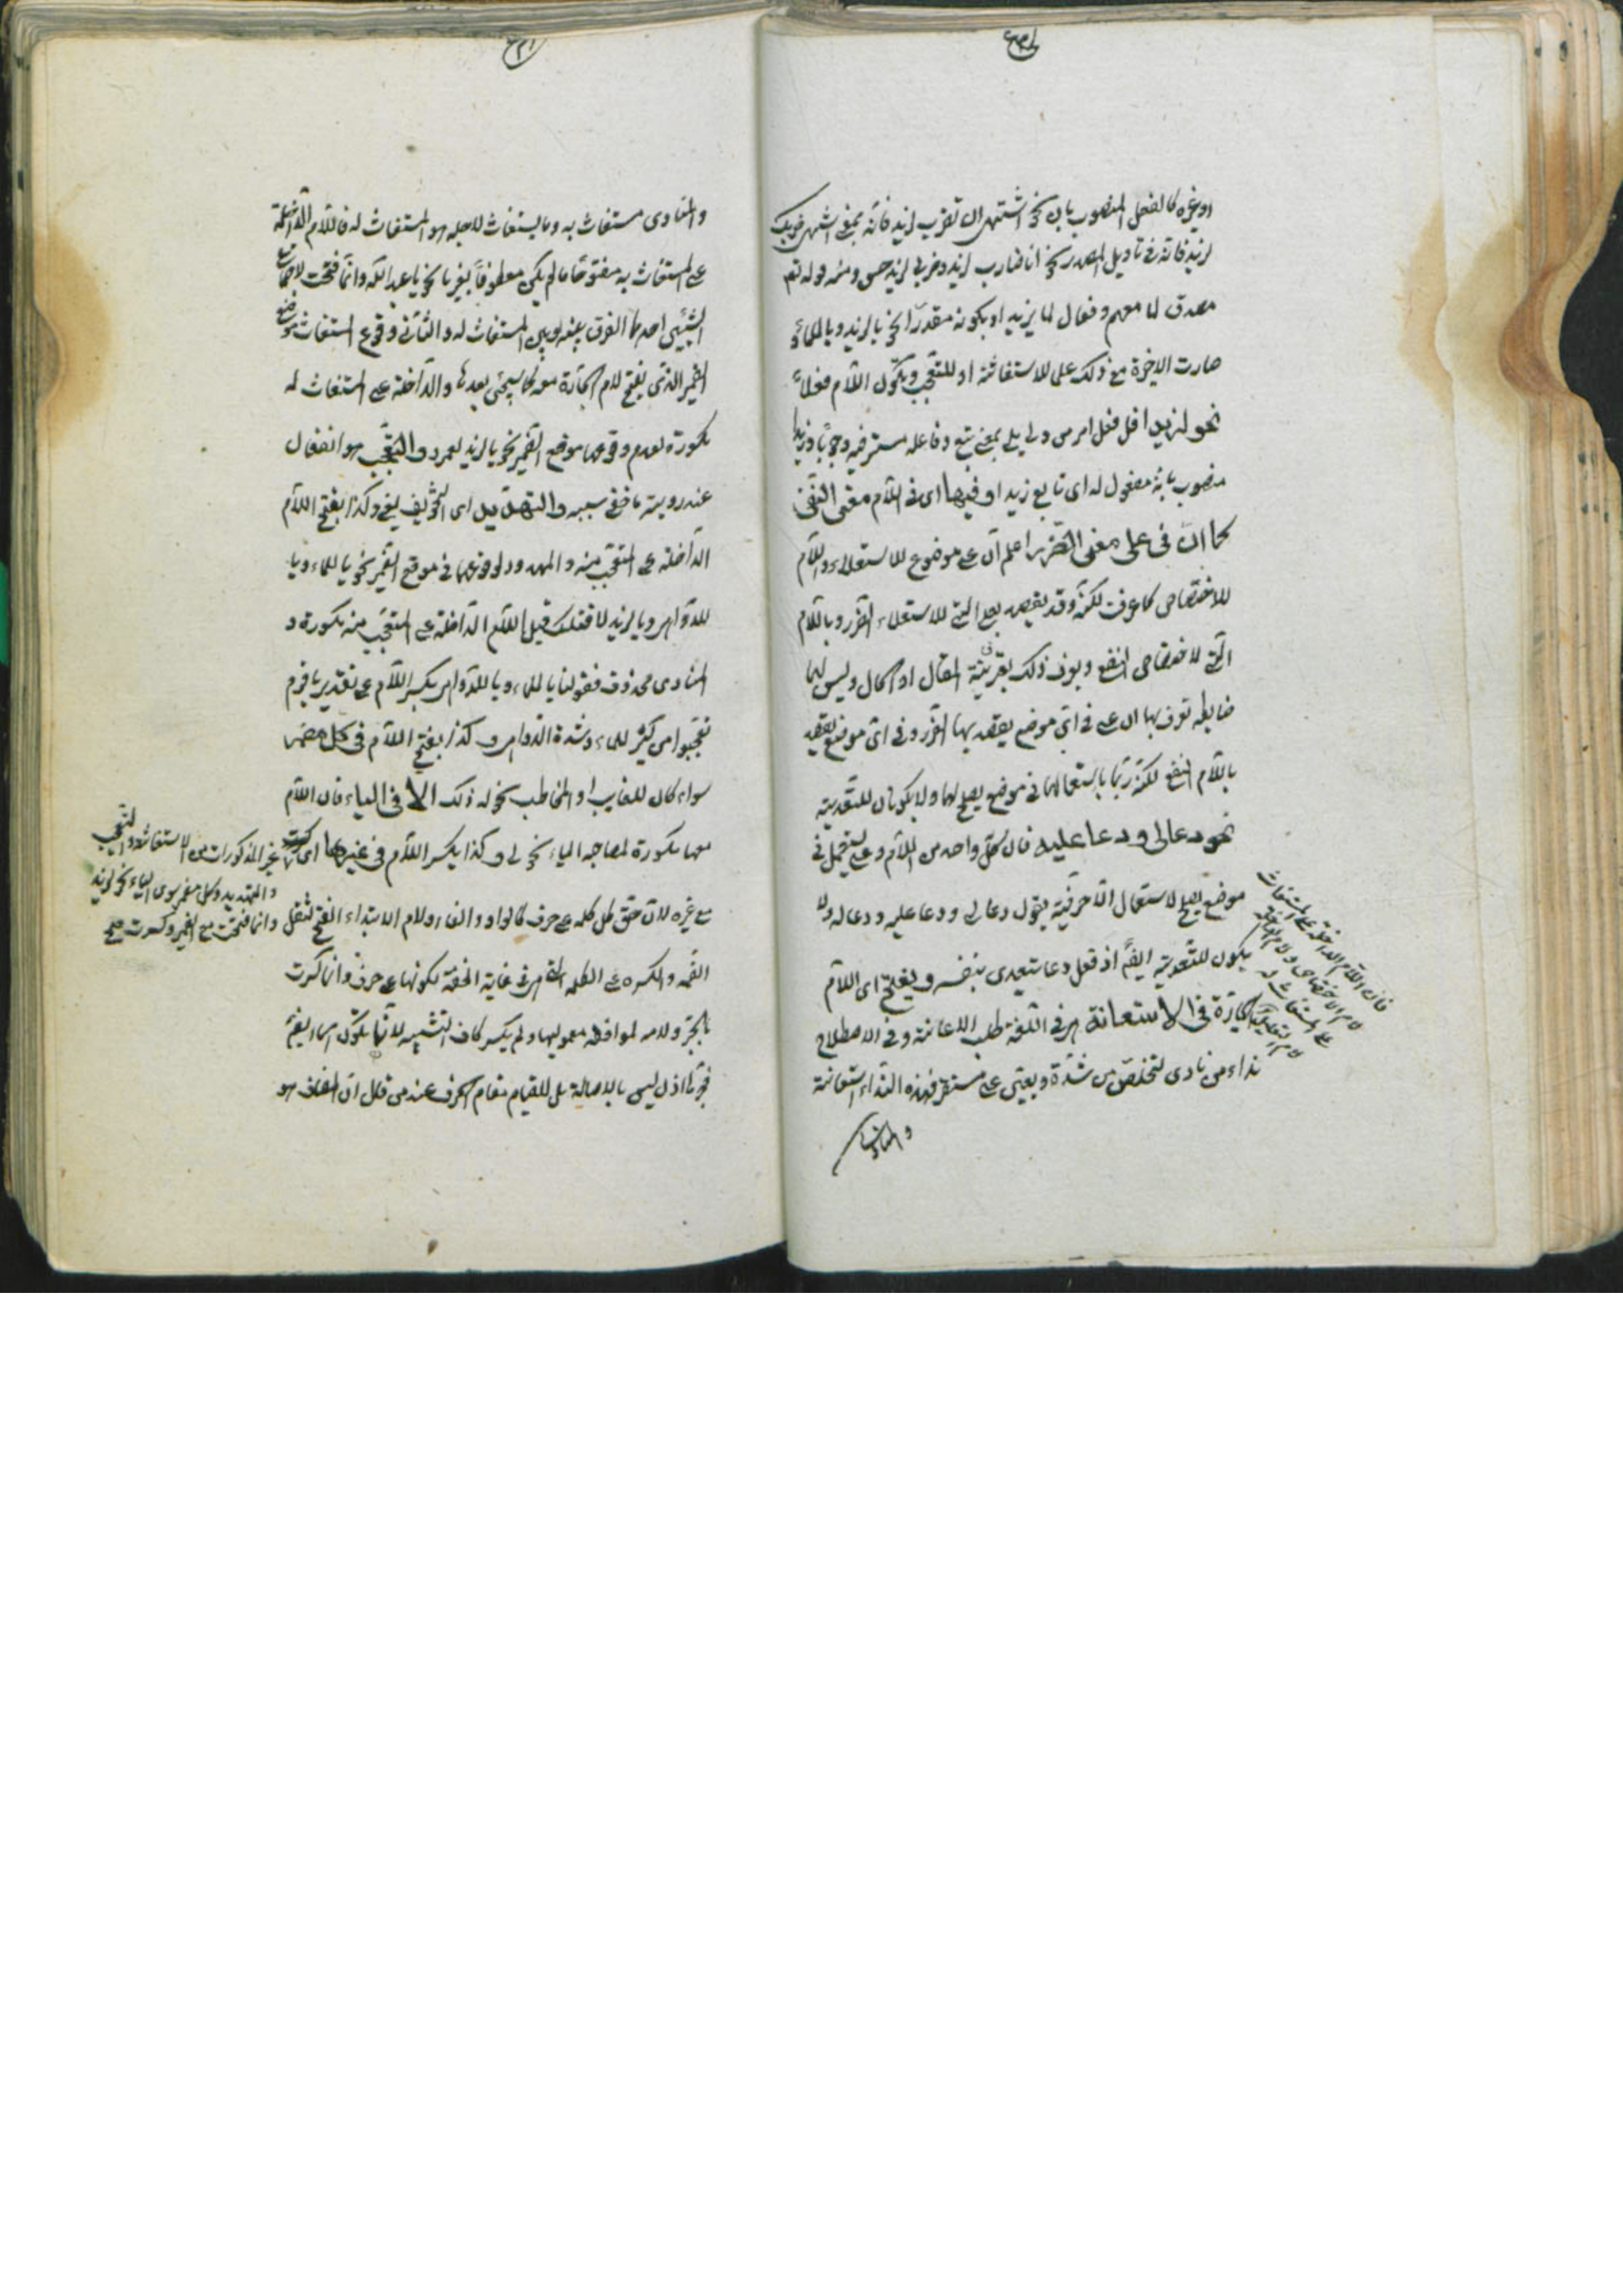 او بغيره كالفعل المنصوب بان نحو اشتهى ان تضرب لزيد فانه بمعنى اشتهى ضربك
لزيد فانه في تاويل المصدر نحو انا ضارب لزيد وضربي لزيد حسن ومنه قوله تعم
مصدق لما معهم وفعال لما يريد او بكونه مقدرا نحو يا لزيد ويا للماء
صارت الاخيرة مع ذلك علما للاستغاثة او للتعجب ويكون اللام فعلا
نحو لزيدا فل فعل امر من ولى يلي بمعنى تبع وفاعله مستتر فيه وجوبا وزيدا
منصوب بانه مفعول له اى تابع زيدا وفيها اى في اللام معنى النفع
كما ان في على معنى الضرر اعلم ان على موضوع للاستعلاء واللام
للاختصاص كما عرفت لكنه قد يقصد بعلى التى للاستعلاء الضرر وباللام
التى للاختصاص النفع ويعرف ذلك بقرينة المقال او الحال وليس لهما
ضابطه تعرف بها ان على في اى موضع يقصد بها الضرر وفي اى موضع يقصد
باللام النفع لكنه ربما باستعمالهما في موضع يصلح لهما ولا يكونان للتعدية
نحو دعا لى ودعا عليه فان كل واحد من اللام وعلى يستعمل في
موضع يصلح لاستعمال الآخر فيه يقول دعا لى ودعا عليه ودعا له ولا
يكون للتعدية ايضا اذ فعل دعا يتعدى بنفسه ويفتح اى اللام
الجارة في الاستغاثة هى في اللغة طلب الاعانة وفي الاصطلاح
نداء من نادى لتخلص من شدة ويعين على مستقر فهذه النداء استغاثة
والمنادى
فان اللام الداخلة على المستغاث
لام الاختصاص
على المستغاث له
والمنادى مستغاث به وما يستغاث لاجله هو المستغاث له فاللام الداخلة
على المستغاث به مفتوحا ما لم يكن معطوفا بغير يا نحو يا عبد الله وانما فتحت لاجماع
الشيئين احدهما الفرق بينه وبين المستغاث له والثاني وقوع المستغاث موضع
الضمير الذى يفتح لام الجارة معه كما سيجئ بعدها والداخلة على المستغاث له
مكسورة لعدم وقوعها موضع الضمير نحو يا لزيد لعمرو والتعجب هو انفعال
عند روية ما خفي سببه والتهديد اى التخويف يعنى وكذا يفتح اللام
الداخلة على المتعجب منه والمهدد لوقوعهما في موقع الضمير نحو يا للماء ويا
للدواهى ويا لزيد لاقتلنك قيل اللام الداخلة على المتعجب منه مكسورة و
المنادى محذوف فقولنا يا للماء ويا للدواهى بكسر اللام على تقدير يا قوم
تعجبوا من كثرة للماء وشدة الدواهى وكذا يفتح اللام في كل مضمر
سواء كان للغايب او المخاطب نحو له ذلك الا في الياء فان اللام
معها مكسورة لمصاحبه الياء نحو لى وكذا يكسر اللام في غيرها اى كسرت في غير المذكورات من الاستغاثة والتعجب
والتهديد وكل مضمر سوى الياء نحو لزيد
مع غيره لان حق كل كلمه على حرف كالواو والفاء ولام الابتداء الفتح لثقل وانما فتحت مع الضمير وكسرت
الضمه والكسره على الكلمه التى هى في غاية الخفة لكونها على حرف وانما كسرت
باء الجر ولامه لموافقه معموليها ولم يكسر كاف التشبيه لانها يكون اسما ايضا
فجرها اذن ليس بالاصالة بل للقيام مقام الحرف عند من قال ان المضاف هو